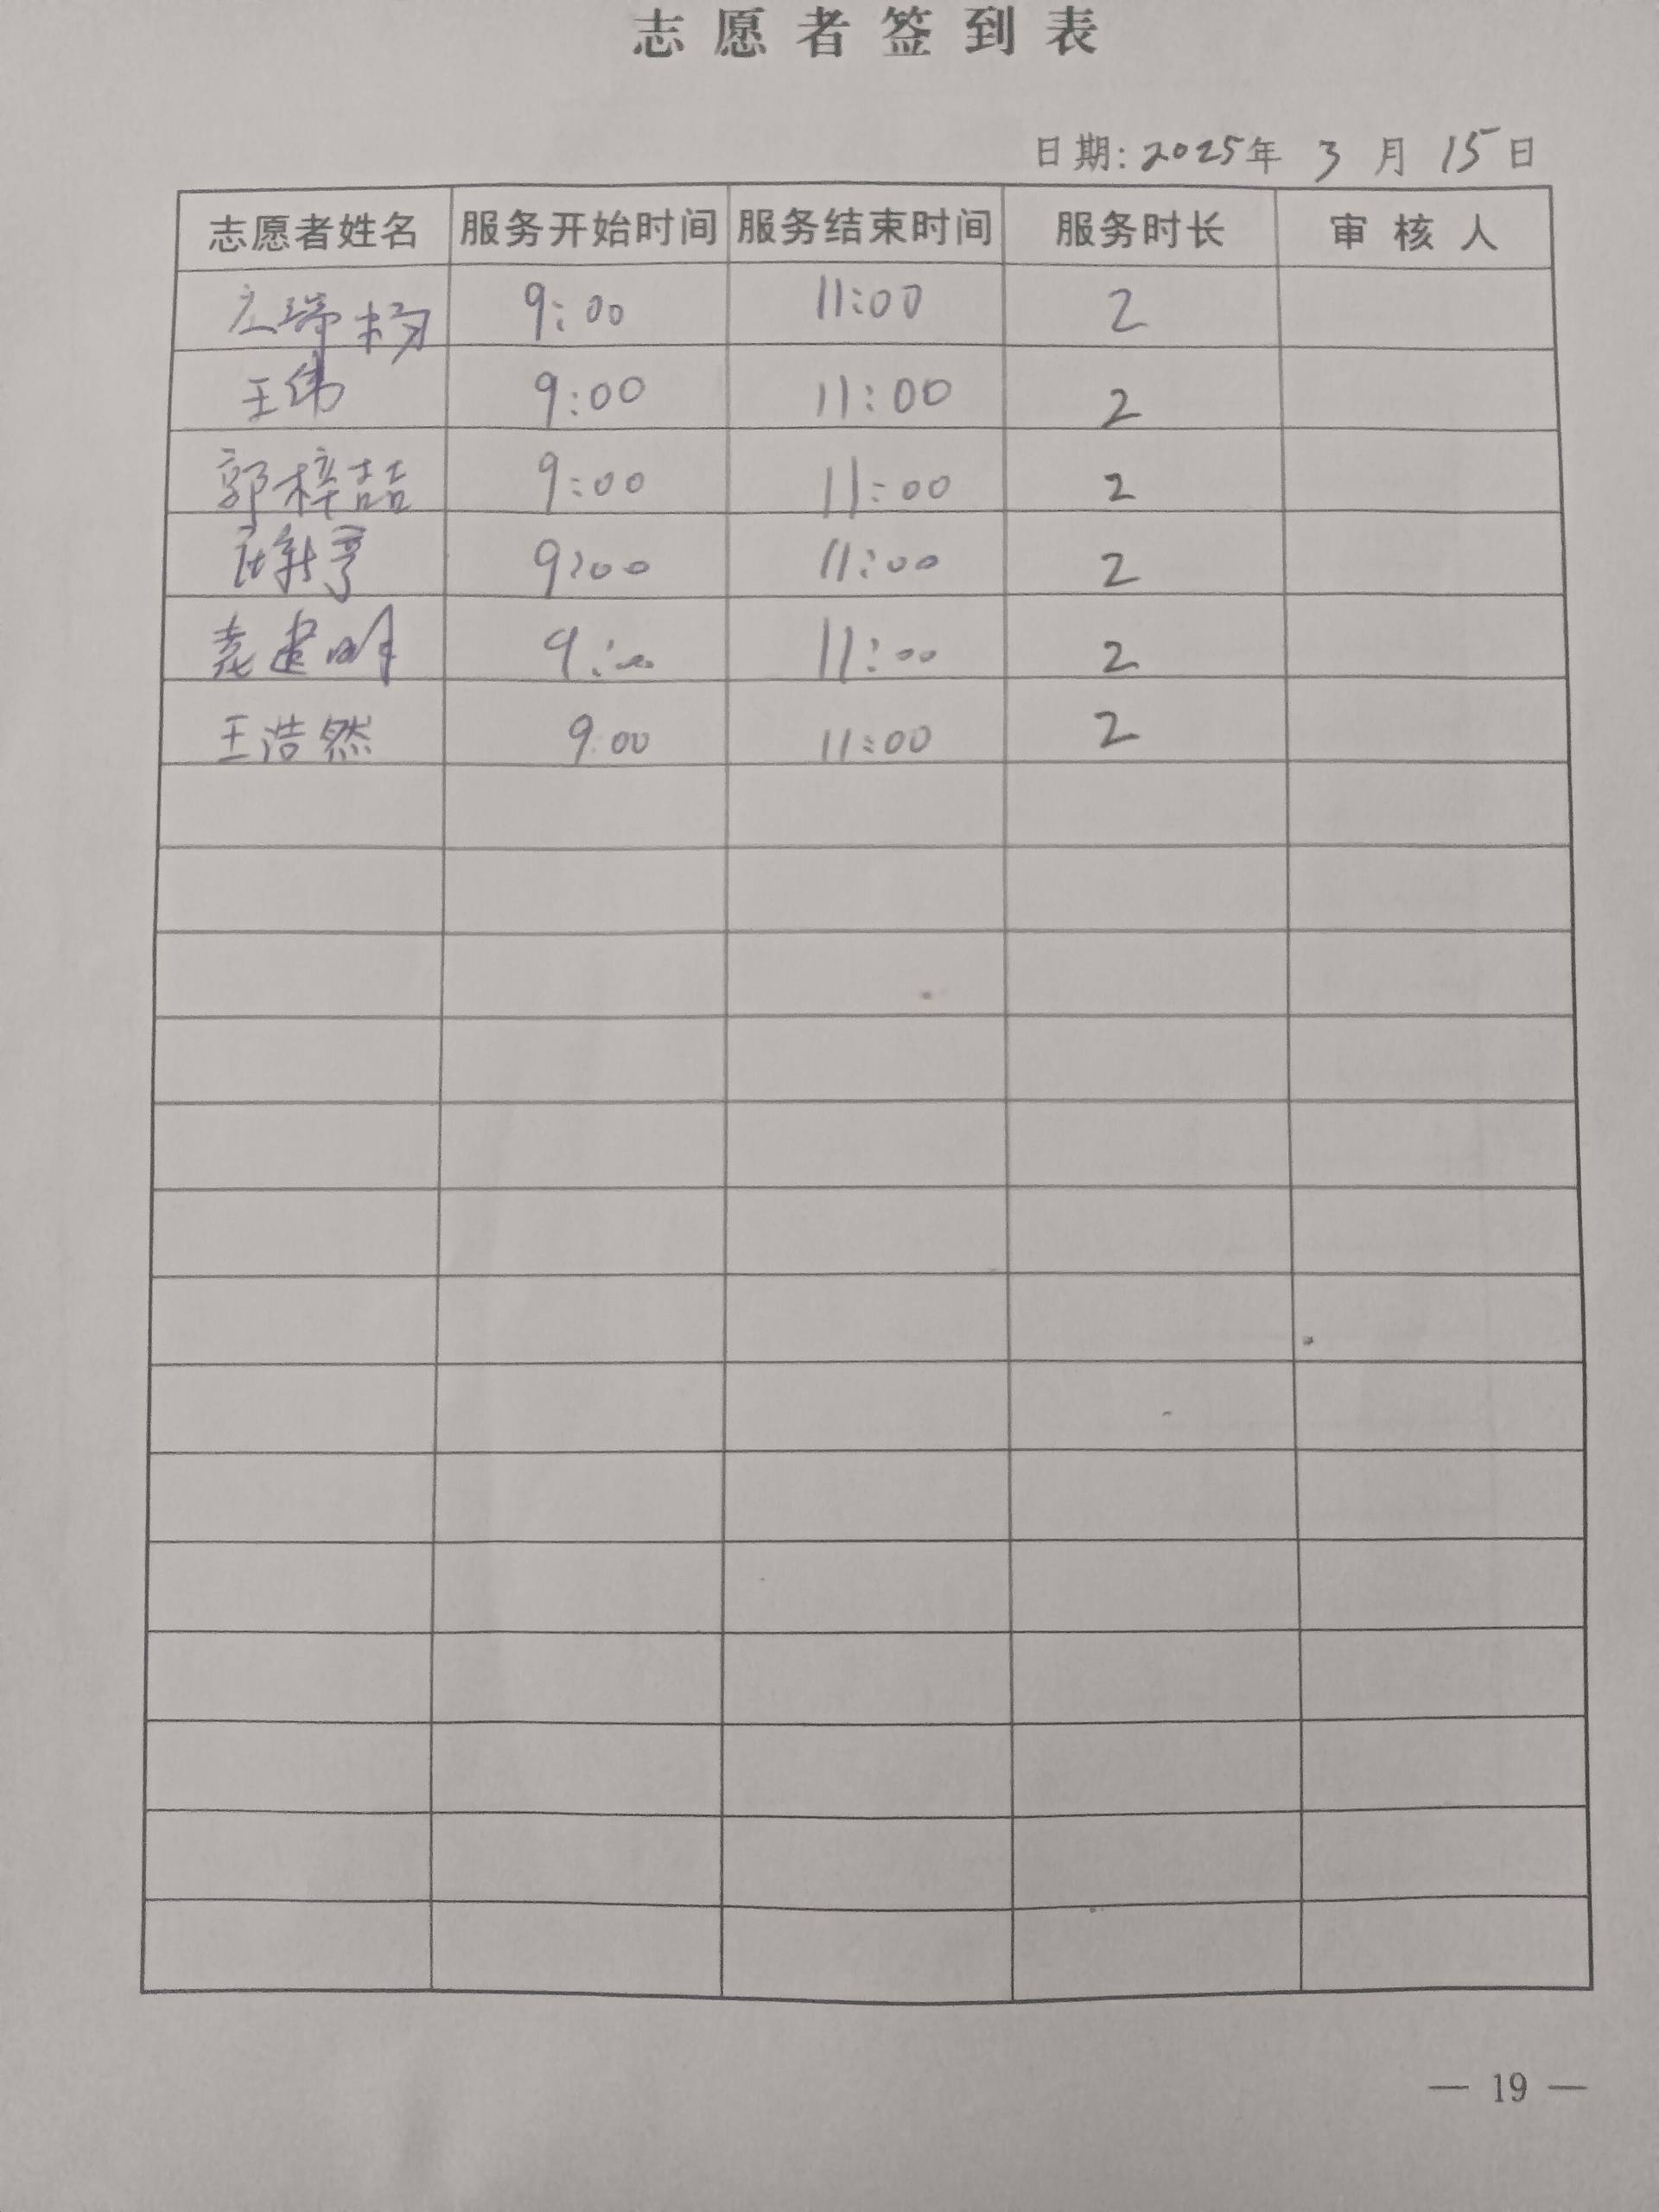 志愿者签到表
日期:2025年 3 月 15日
志愿者姓名 服务开始时间 服务结束时间 服务时长 审核人
9:00 11:00 2
王伟 9:00 11:00 2
郭梓喆 9:00 11:00 2
9:00 11:00 2
袁建明 9:00 11:00 2
王浩然 9:00 11:00 2
— 19 —